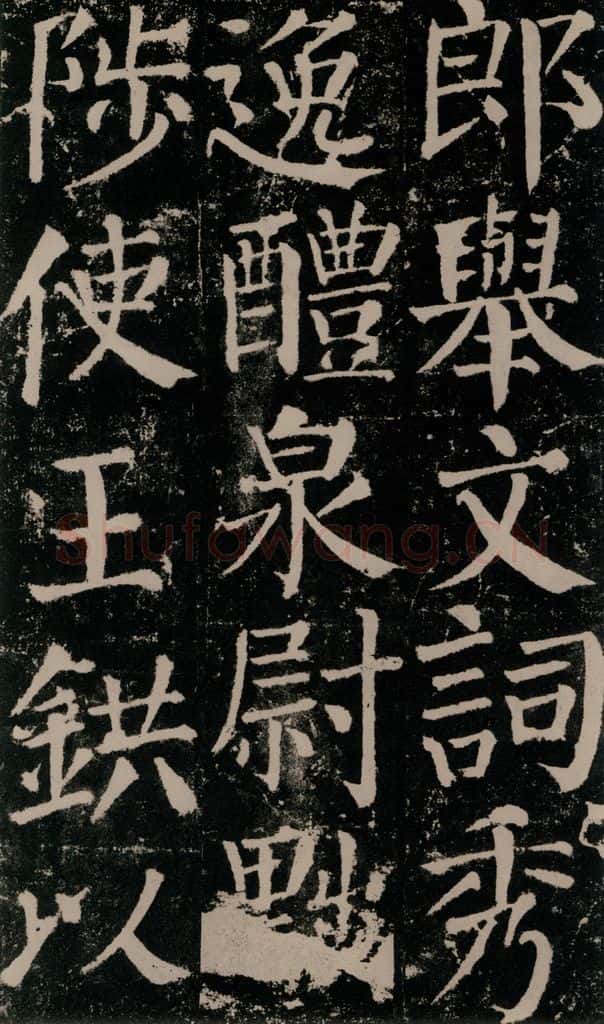 郎舉文詞秀
逸醴泉尉黜
陟使王鉷以
Shufawang.CN